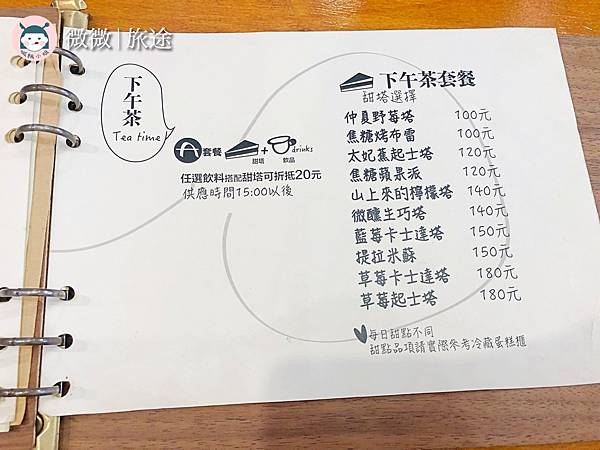 微微|旅途
下午茶
Tea time!
A套餐 甜塔 + drinks 飲品
任選飲料搭配甜塔可折抵20元
供應時間15:00以後
下午茶套餐
甜塔選擇
仲夏野莓塔 100元
焦糖烤布雷 100元
太妃蕉起士塔 120元
焦糖蘋果派 120元
山上來的檸檬塔 140元
微醺生巧塔 140元
藍莓卡士達塔 150元
提拉米蘇 150元
草莓卡士達塔 180元
草莓起士塔 180元
每日甜點不同
甜點品項請實際參考冷藏蛋糕櫃